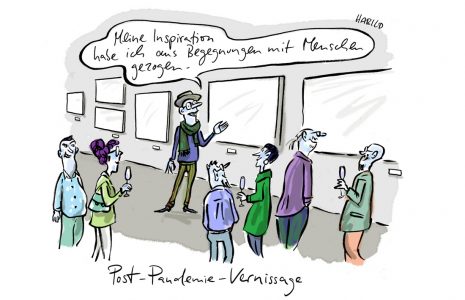 HARILD
Meine Inspiration
habe ich aus Begegnungen mit Menschen
gezogen.
Post-Pandemie-Vernissage